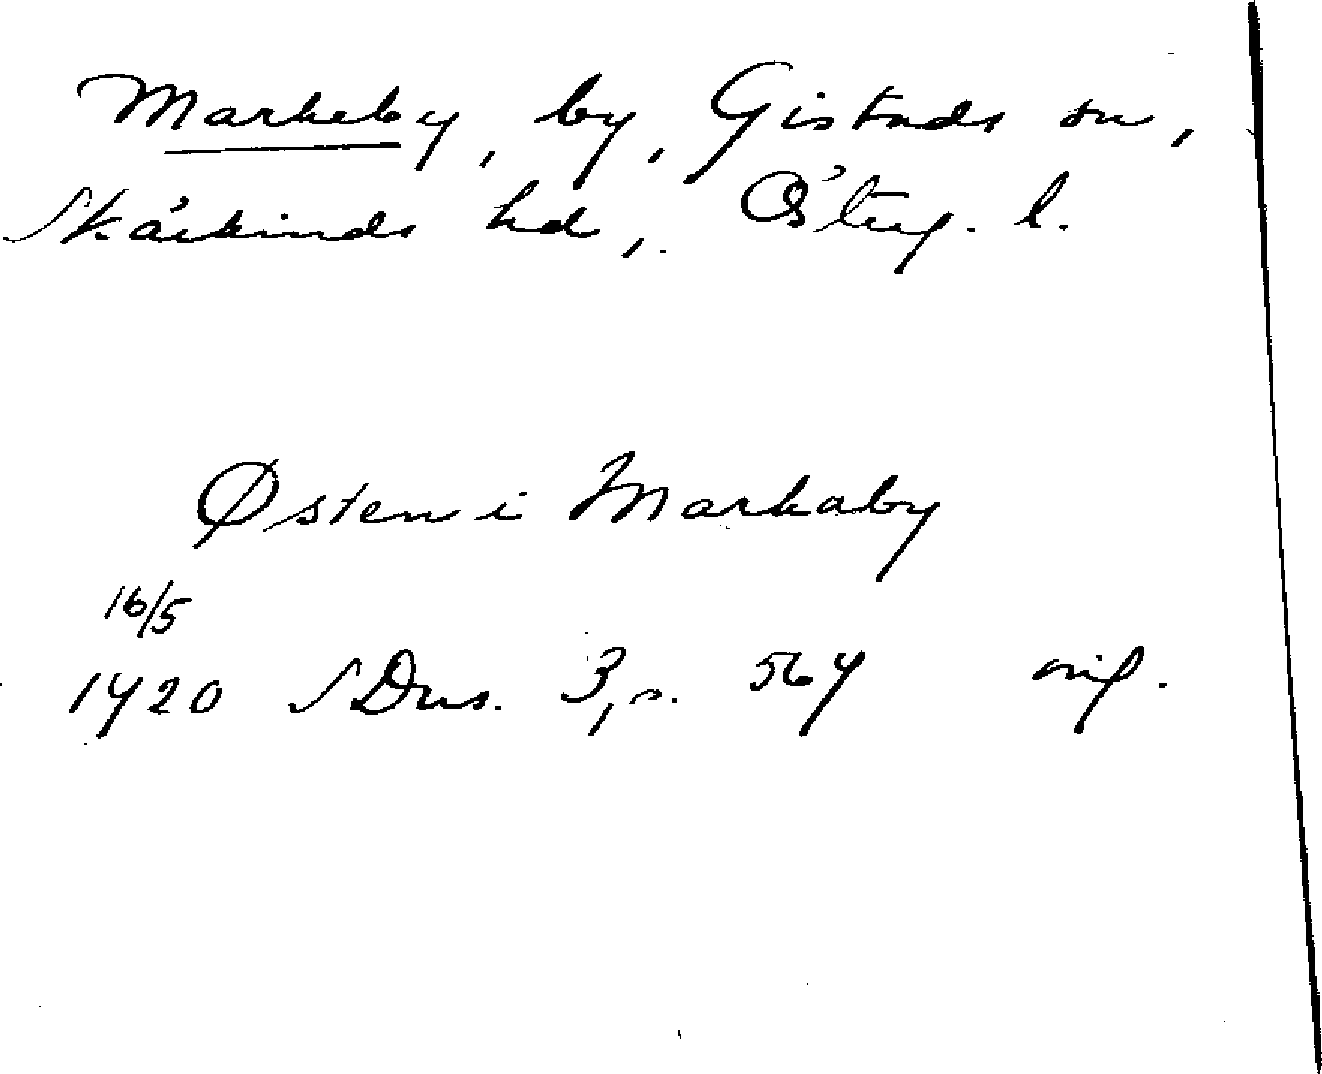 Markeby, by, Gistads sn,
Skärkinds hd, Österg. l.
Østen i Markaby
16/5
1420 SDns. 3, s. 564 orig.